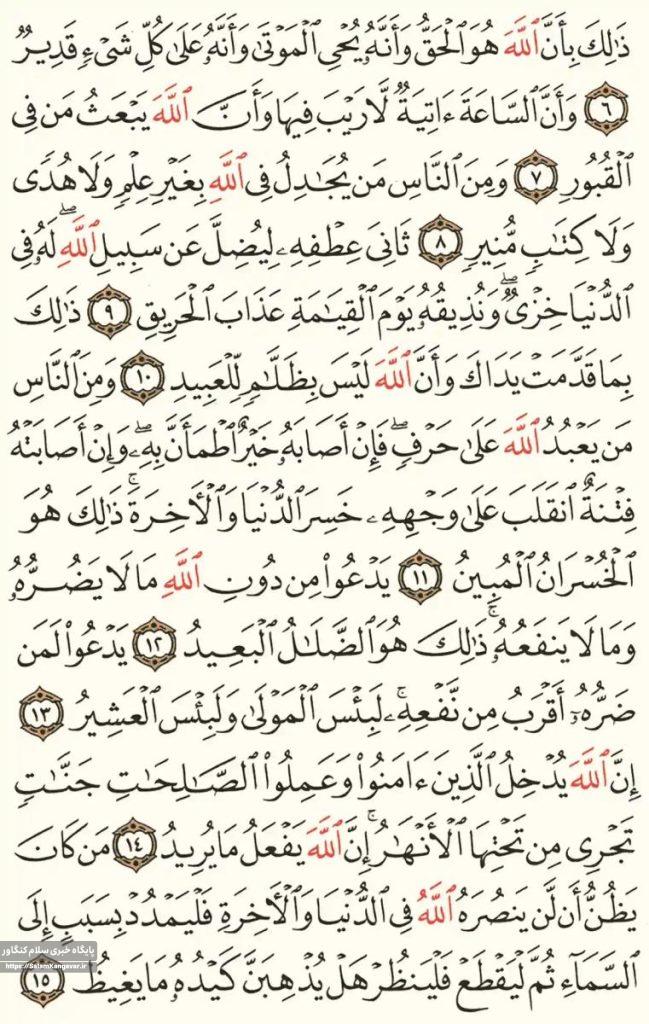 ذَٰلِكَ بِأَنَّ ٱللَّهَ هُوَ ٱلۡحَقُّ وَأَنَّهُۥ يُحۡيِ ٱلۡمَوۡتَىٰ وَأَنَّهُۥ عَلَىٰ كُلِّ شَيۡءٖ قَدِيرٞ
٦ وَأَنَّ ٱلسَّاعَةَ ءَاتِيَةٞ لَّا رَيۡبَ فِيهَا وَأَنَّ ٱللَّهَ يَبۡعَثُ مَن فِي
ٱلۡقُبُورِ ٧ وَمِنَ ٱلنَّاسِ مَن يُجَٰدِلُ فِي ٱللَّهِ بِغَيۡرِ عِلۡمٖ وَلَا هُدٗى
وَلَا كِتَٰبٖ مُّنِيرٖ ٨ ثَانِيَ عِطۡفِهِۦ لِيُضِلَّ عَن سَبِيلِ ٱللَّهِۖ لَهُۥ فِي
ٱلدُّنۡيَا خِزۡيٞۖ وَنُذِيقُهُۥ يَوۡمَ ٱلۡقِيَٰمَةِ عَذَابَ ٱلۡحَرِيقِ ٩ ذَٰلِكَ
بِمَا قَدَّمَتۡ يَدَاكَ وَأَنَّ ٱللَّهَ لَيۡسَ بِظَلَّٰمٖ لِّلۡعَبِيدِ ١٠ وَمِنَ ٱلنَّاسِ
مَن يَعۡبُدُ ٱللَّهَ عَلَىٰ حَرۡفٖۖ فَإِنۡ أَصَابَهُۥ خَيۡرٌ ٱطۡمَأَنَّ بِهِۦۖ وَإِنۡ أَصَابَتۡهُ
فِتۡنَةٌ ٱنقَلَبَ عَلَىٰ وَجۡهِهِۦ خَسِرَ ٱلدُّنۡيَا وَٱلۡأٓخِرَةَۚ ذَٰلِكَ هُوَ
ٱلۡخُسۡرَانُ ٱلۡمُبِينُ ١١ يَدۡعُواْ مِن دُونِ ٱللَّهِ مَا لَا يَضُرُّهُۥ
وَمَا لَا يَنفَعُهُۥۚ ذَٰلِكَ هُوَ ٱلضَّلَٰلُ ٱلۡبَعِيدُ ١٢ يَدۡعُواْ لَمَن
ضَرُّهُۥٓ أَقۡرَبُ مِن نَّفۡعِهِۦۚ لَبِئۡسَ ٱلۡمَوۡلَىٰ وَلَبِئۡسَ ٱلۡعَشِيرُ ١٣
إِنَّ ٱللَّهَ يُدۡخِلُ ٱلَّذِينَ ءَامَنُواْ وَعَمِلُواْ ٱلصَّٰلِحَٰتِ جَنَّٰتٖ
تَجۡرِي مِن تَحۡتِهَا ٱلۡأَنۡهَٰرُۚ إِنَّ ٱللَّهَ يَفۡعَلُ مَا يُرِيدُ ١٤ مَن كَانَ
يَظُنُّ أَن لَّن يَنصُرَهُ ٱللَّهُ فِي ٱلدُّنۡيَا وَٱلۡأٓخِرَةِ فَلۡيَمۡدُدۡ بِسَبَبٍ إِلَى
ٱلسَّمَآءِ ثُمَّ لۡيَقۡطَعۡ فَلۡيَنظُرۡ هَلۡ يُذۡهِبَنَّ كَيۡدُهُۥ مَا يَغِيظُ ١٥
پایگاه خبری سلام کنگاور
https://SalamKangavar.ir